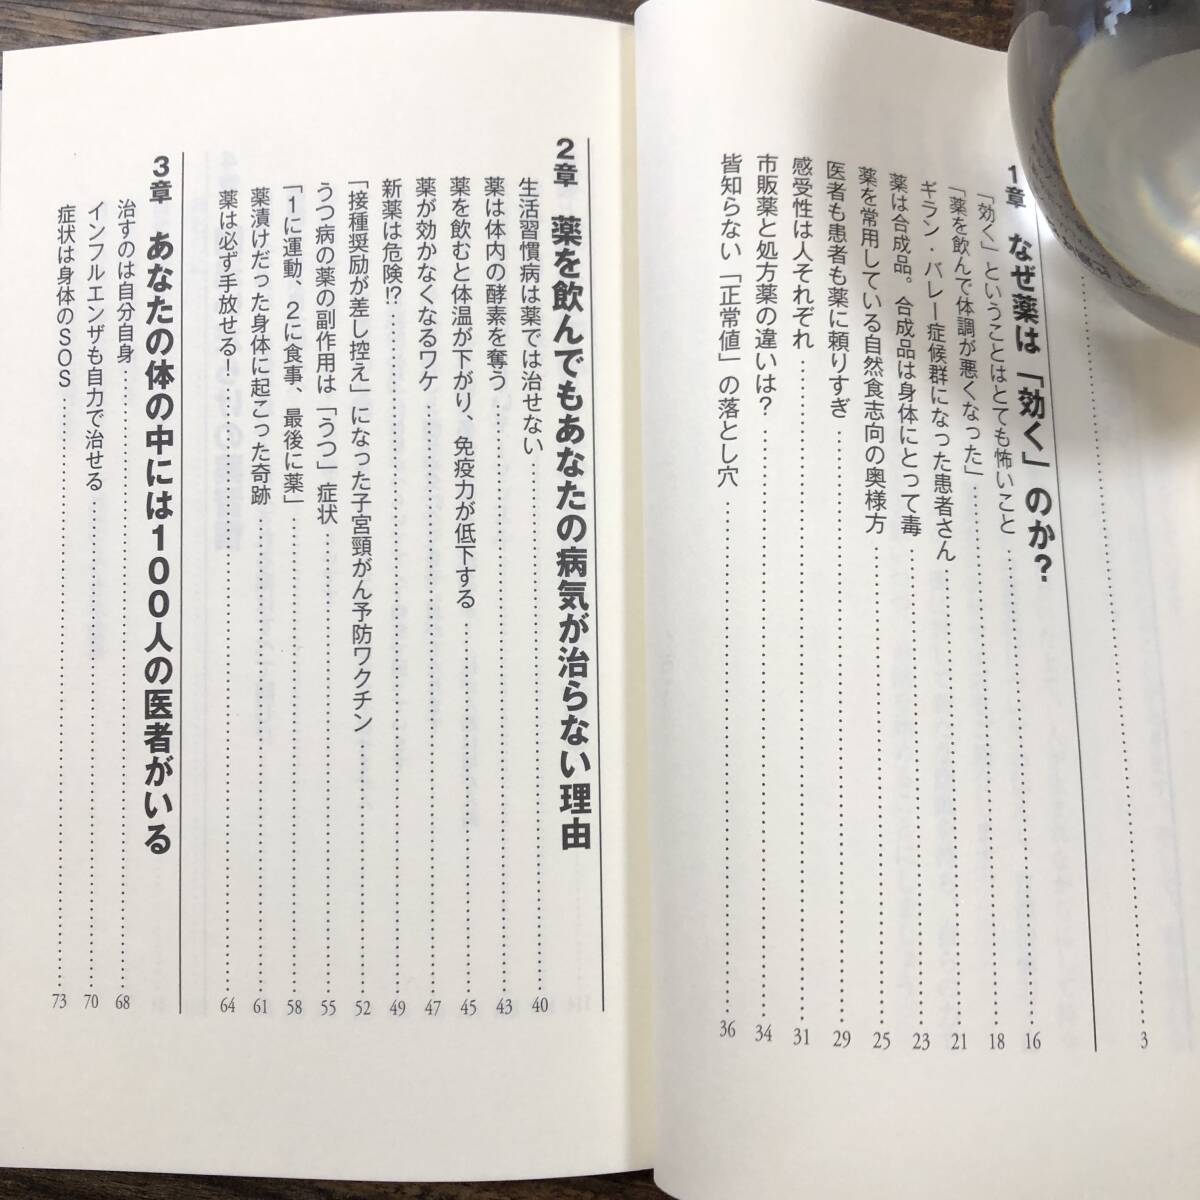 3
1章 なぜ薬は「効く」のか?
「効く」ということはとても怖いこと 16
「薬を飲んで体調が悪くなった」 18
ギラン・バレー症候群になった患者さん 21
薬は合成品。合成品は身体にとって毒 23
薬を常用している自然食志向の奥様方 25
医者も患者も薬に頼りすぎ 29
感受性は人それぞれ 31
市販薬と処方薬の違いは? 34
皆知らない「正常値」の落とし穴 36
2章 薬を飲んでもあなたの病気が治らない理由
生活習慣病は薬では治せない 40
薬は体内の酵素を奪う 43
薬を飲むと体温が下がり、免疫力が低下する 45
薬が効かなくなるワケ 47
新薬は危険!? 49
「接種奨励が差し控え」になった子宮頸がん予防ワクチン 52
うつ病の薬の副作用は「うつ」症状 55
「1に運動、2に食事、最後に薬」 58
薬漬けだった身体に起こった奇跡 61
薬は必ず手放せる! 64
3章 あなたの体の中には100人の医者がいる
治すのは自分自身 68
インフルエンザも自力で治せる 70
症状は身体のSOS 73